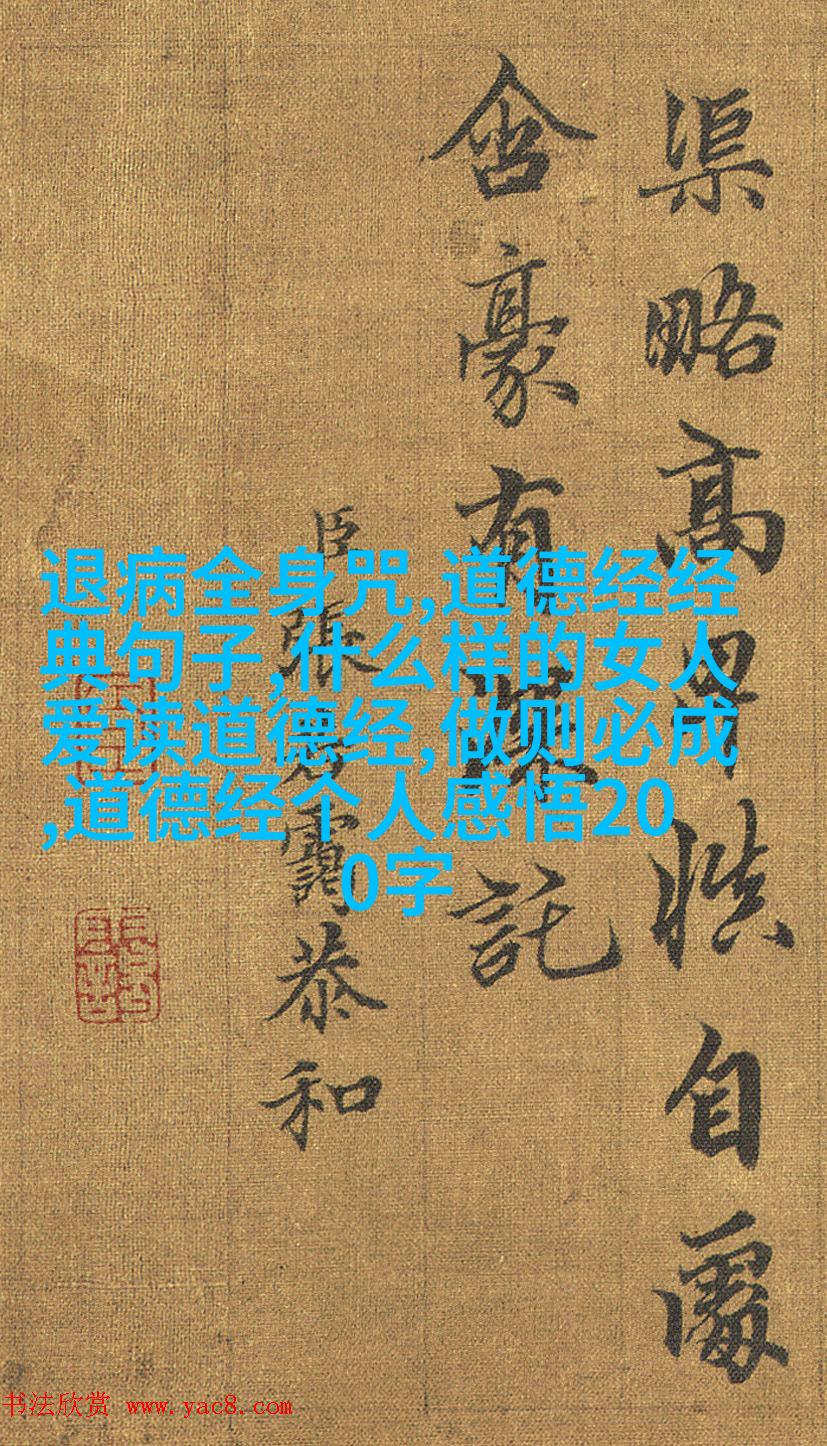 渠略高卑慎自處
含豪有託
臣張若靄恭和
退病全身咒,道德经经
典句子,什么样的女人
爱读道德经,做则必成
,道德经个人感悟20
0字
书法欣赏 www.yac8.com